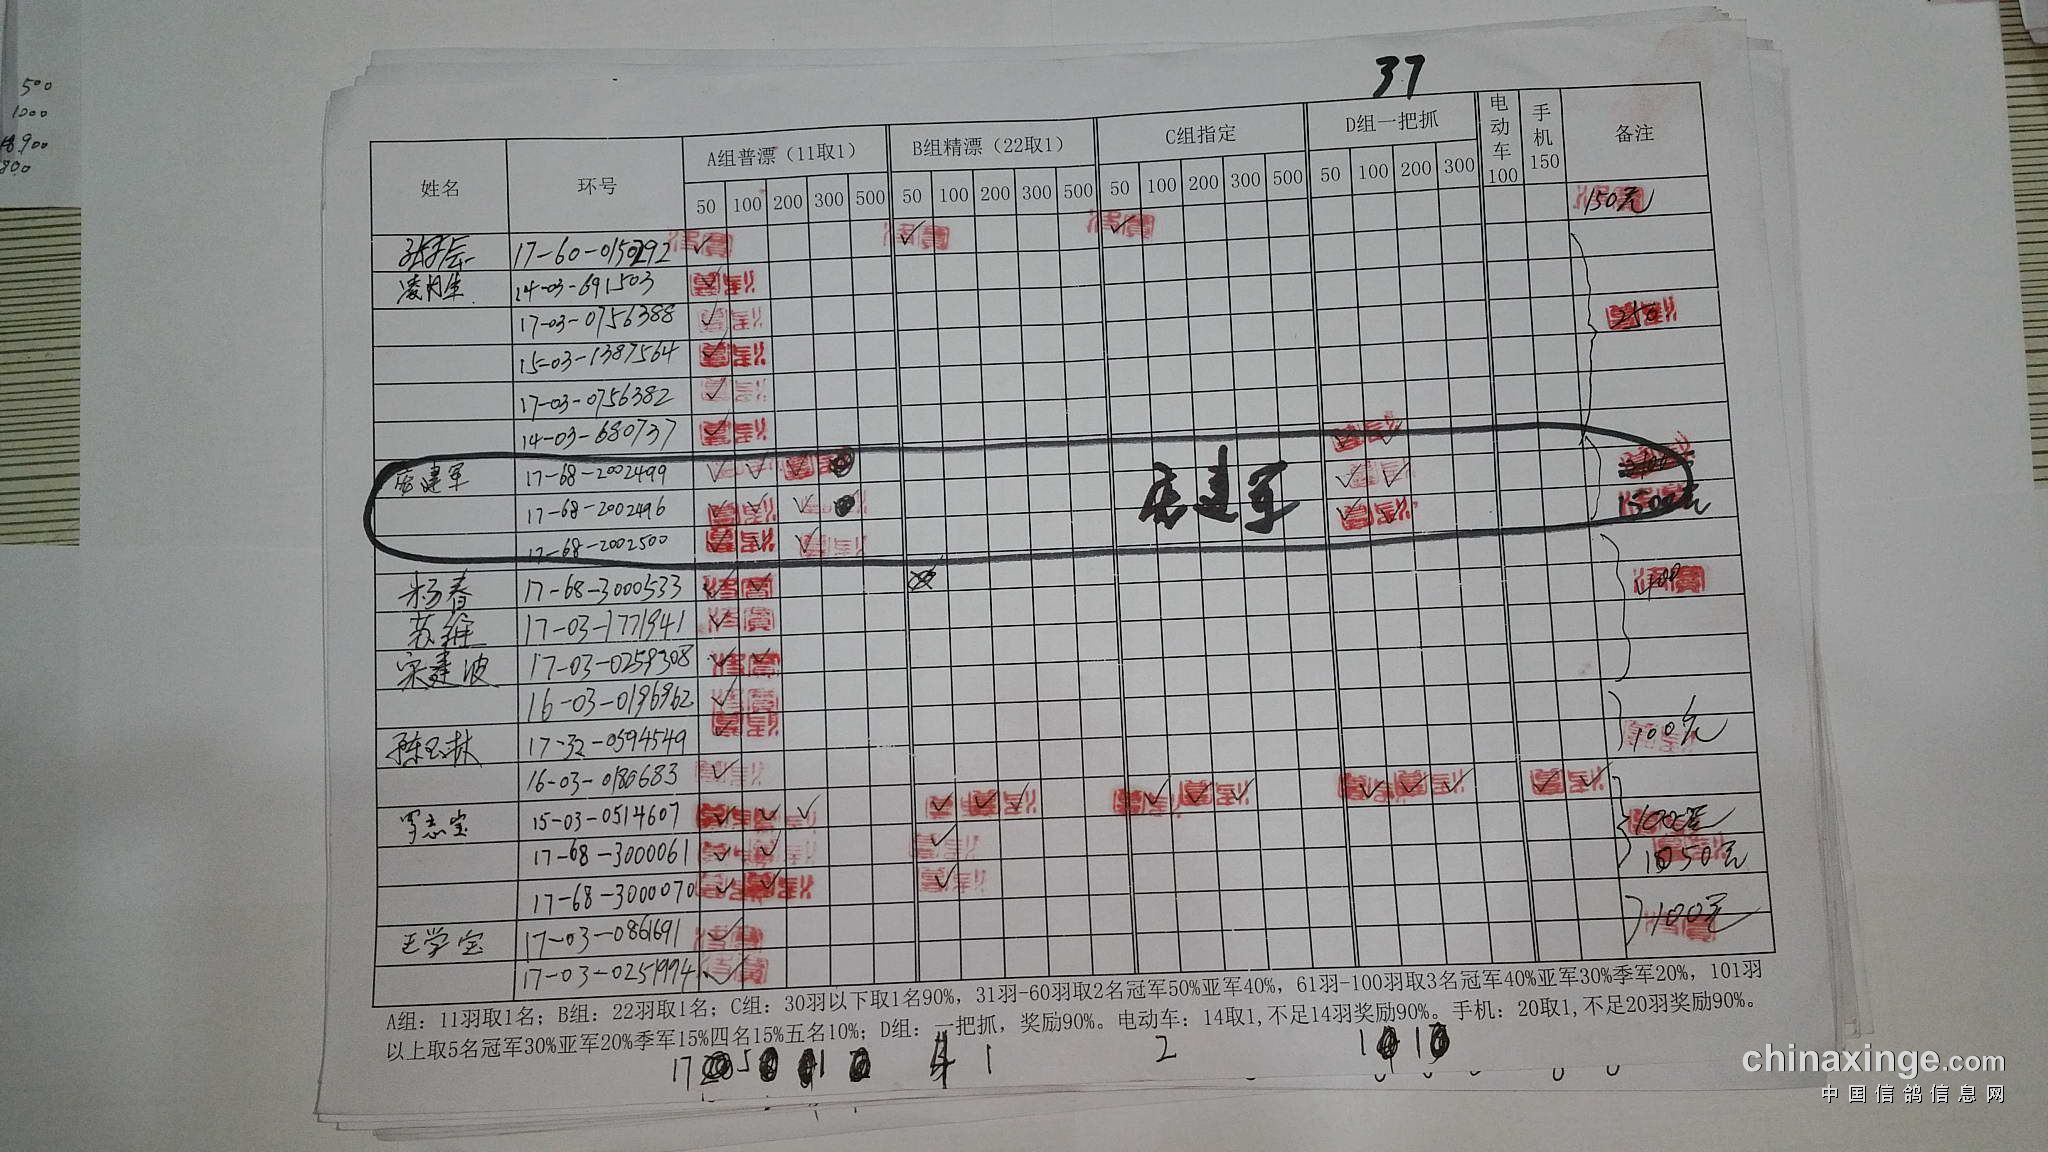 500
1000
37
姓名 环号 A组普漂（11取1） B组精漂（22取1） C组指定 D组一把抓 电动车100 手机150 备注
50 100 200 300 500 50 100 200 300 500 50 100 200 300 500 50 100 200 300
150元
17-60-0150292
凌月生 14-03-691503
17-03-0756388
250
15-03-1387564
17-03-0756382
14-03-680737
17-68-2002499
建军
17-68-2002496
1500元
17-68-2002500
杨春 17-68-3000533
400
苏维 17-03-1771941
宋建波 17-03-0259308
16-03-0196962
陈玉林 17-32-0594549 100元
16-03-0180683
罗志宝 15-03-0514607
17-68-3000061 1050元
17-68-3000070
王学宝 17-03-0861691 100元
17-03-0251994
A组：11羽取1名；B组：22羽取1名；C组：30羽以下取1名90%，31羽-60羽取2名冠军50%亚军40%，61羽-100羽取3名冠军40%亚军30%季军20%，101羽
以上取5名冠军30%亚军20%季军15%四名15%五名10%；D组：一把抓，奖励90%。电动车：14取1,不足14羽奖励90%。手机：20取1,不足20羽奖励90%。
17 5 1 1 2 1 1
chinaxinge.com
中国信鸽信息网